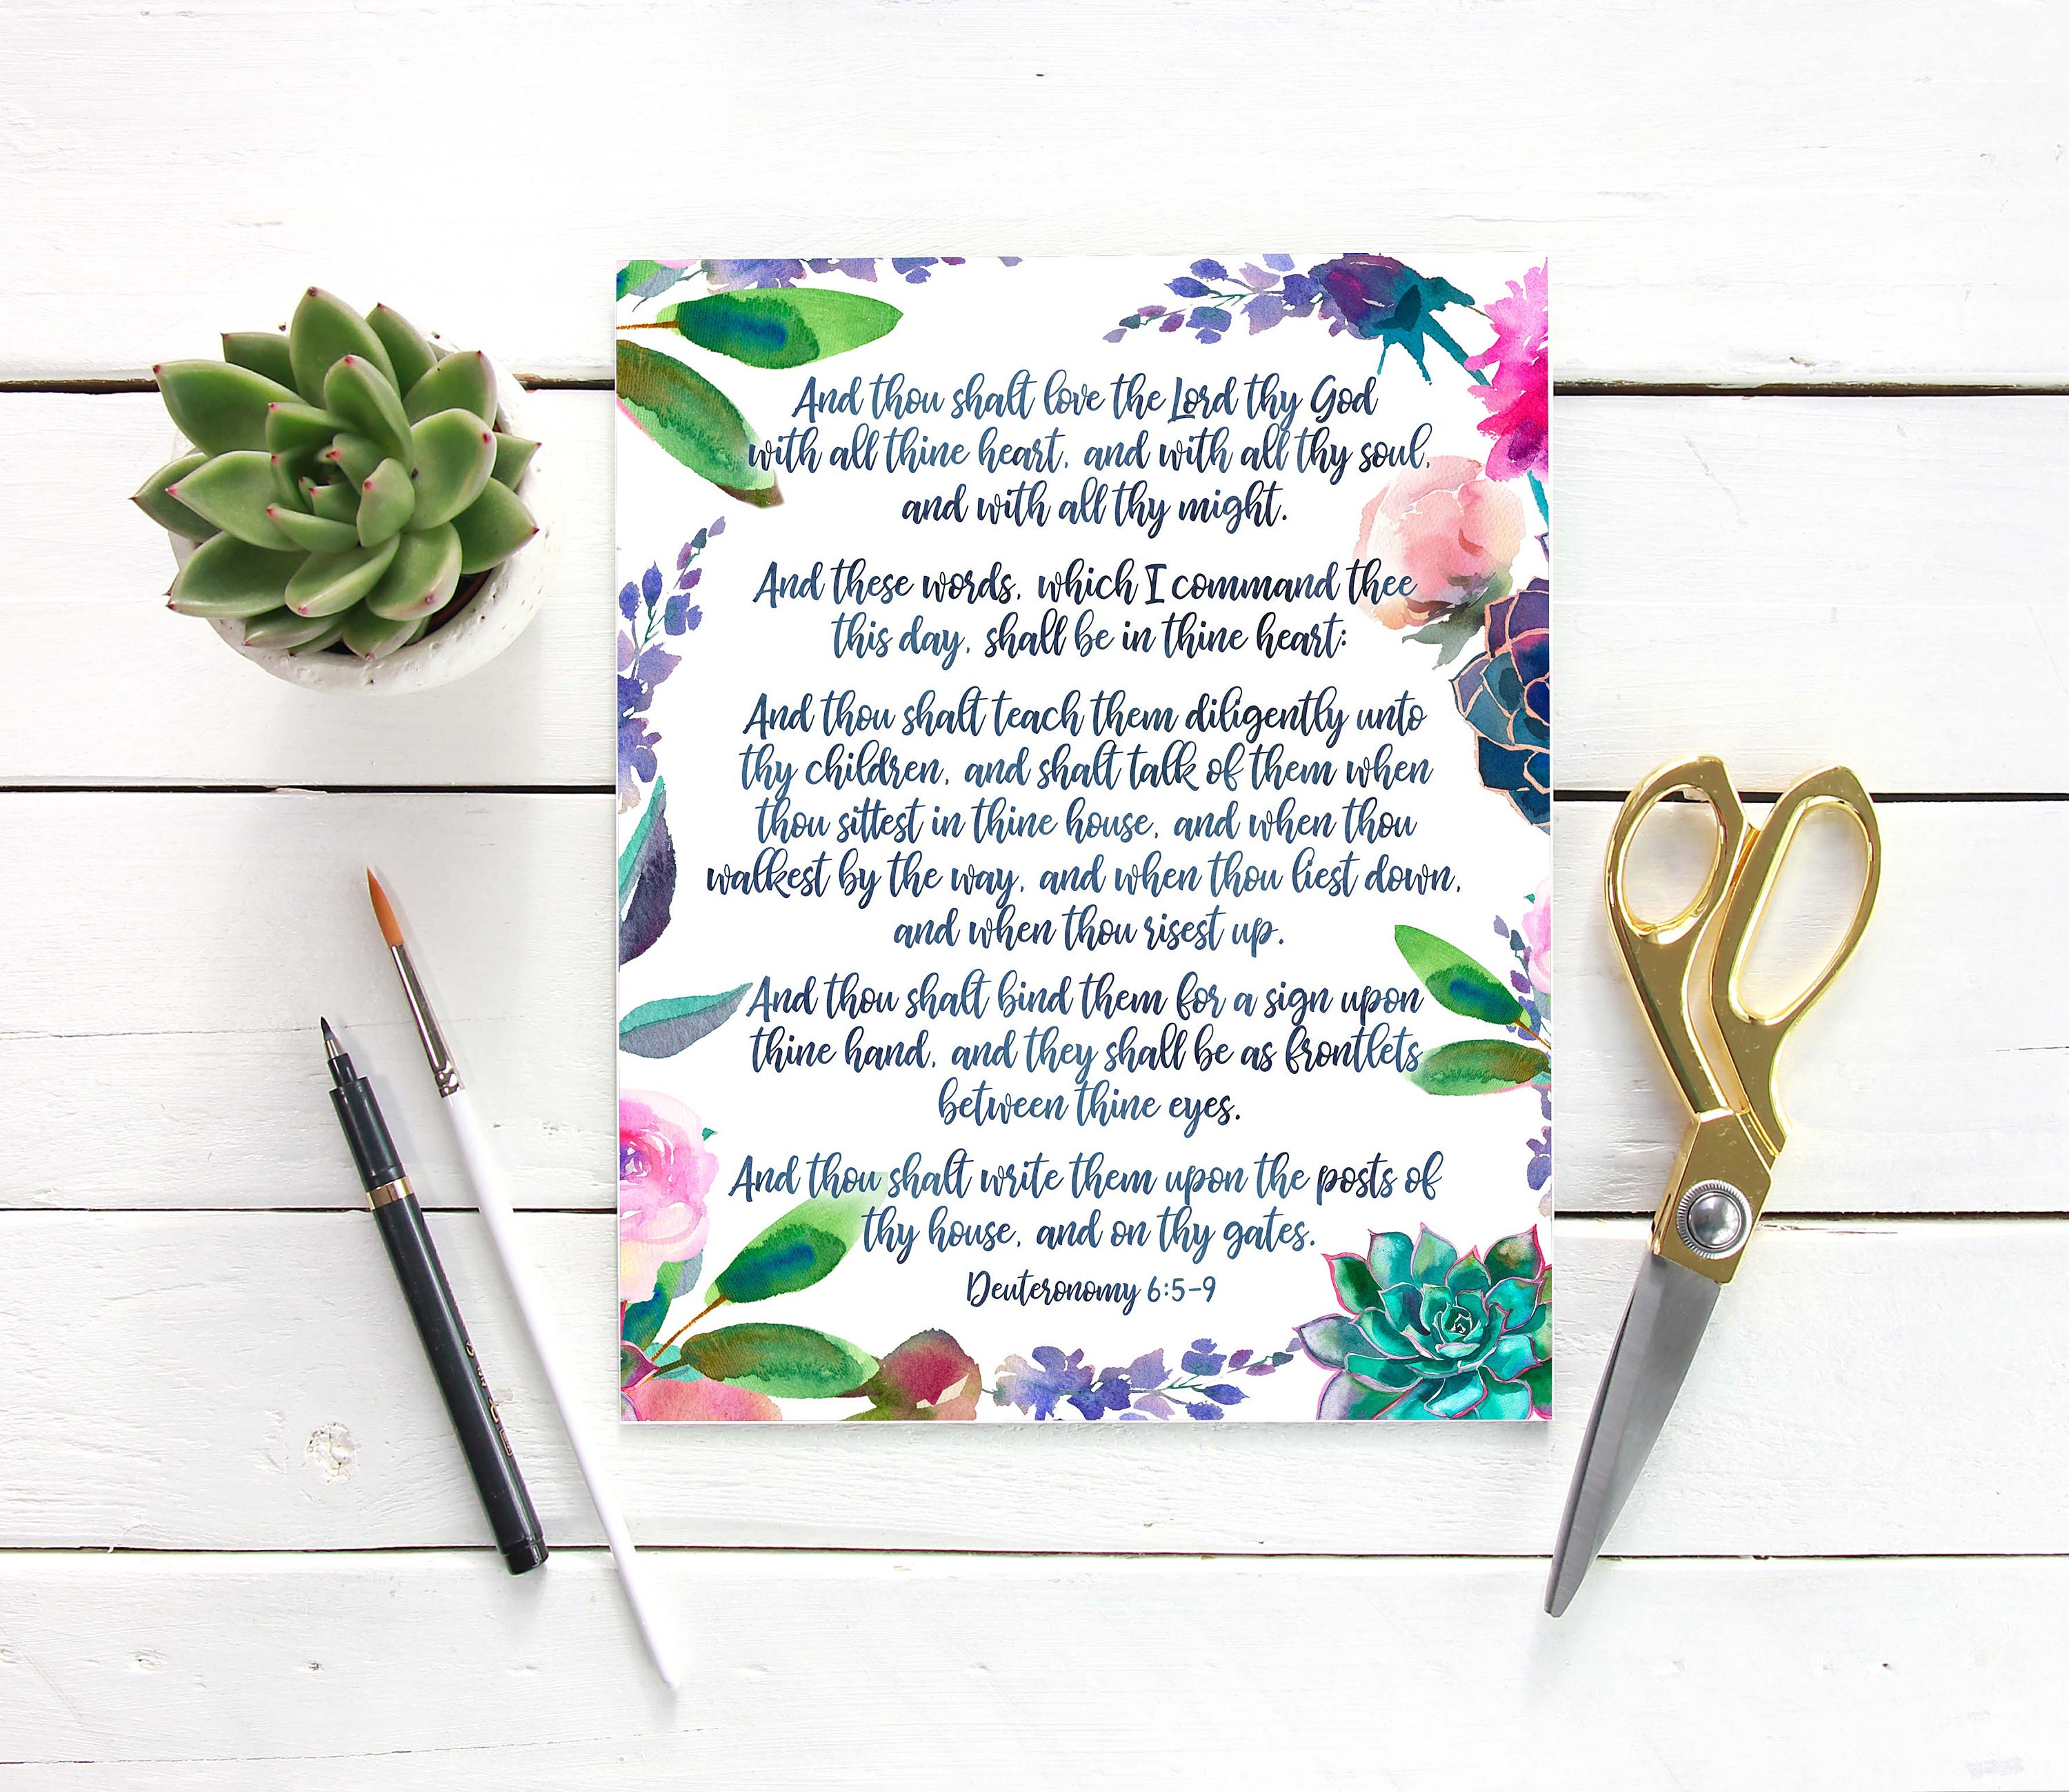 And thou shalt love the Lord thy God
with all thine heart, and with all thy soul,
and with all thy might.
And these words, which I command thee
this day, shall be in thine heart:
And thou shalt teach them diligently unto
thy children, and shalt talk of them when
thou sittest in thine house, and when thou
walkest by the way, and when thou liest down,
and when thou risest up.
And thou shalt bind them for a sign upon
thine hand, and they shall be as frontlets
between thine eyes.
And thou shalt write them upon the posts of
thy house, and on thy gates.
Deuteronomy 6:5-9